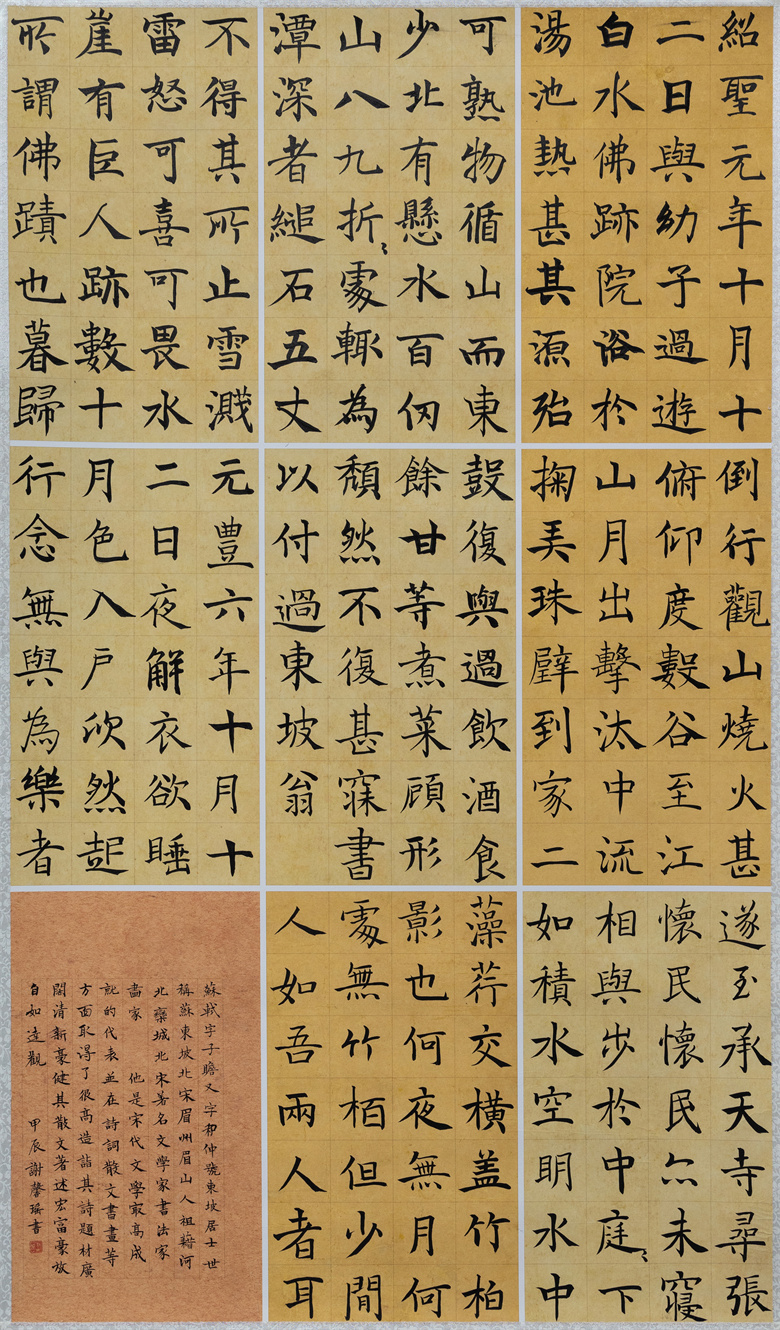 紹聖元年十月十
二日與幼子過遊
白水佛跡院浴於
湯池熱甚其源殆
可熟物循山而東
少北有懸水百仞
山八九折々處輒為
潭深者縋石五丈
不得其所止雪濺
雷怒可喜可畏水
崖有巨人跡數十
所謂佛蹟也暮歸
倒行觀山燒火甚
俯仰度數谷至江
山月出擊汰中流
掬弄珠璧到家二
鼓復與過飲酒食
餘甘等煮菜顧形
頹然不復甚寐書
以付過東坡翁
元豊六年十月十
二日夜解衣欲睡
月色入戶欣然起
行念無與為樂者
遂至承天寺尋張
懷民懷民亦未寢
相與步於中庭々下
如積水空明水中
藻荇交橫盖竹柏
影也何夜無月何
處無竹栢但少閒
人如吾兩人者耳
蘇軾字子瞻又字和仲號東坡居士世
稱蘇東坡北宋眉州眉山人祖籍河
北欒城北宋著名文學家書法家
畫家 他是宋代文學最高成
就的代表並在詩詞散文書畫等
方面取得了很高造詣其詩題材廣
闊清新豪健其散文著述宏富豪放
自如達觀 甲辰謝馨瑤書